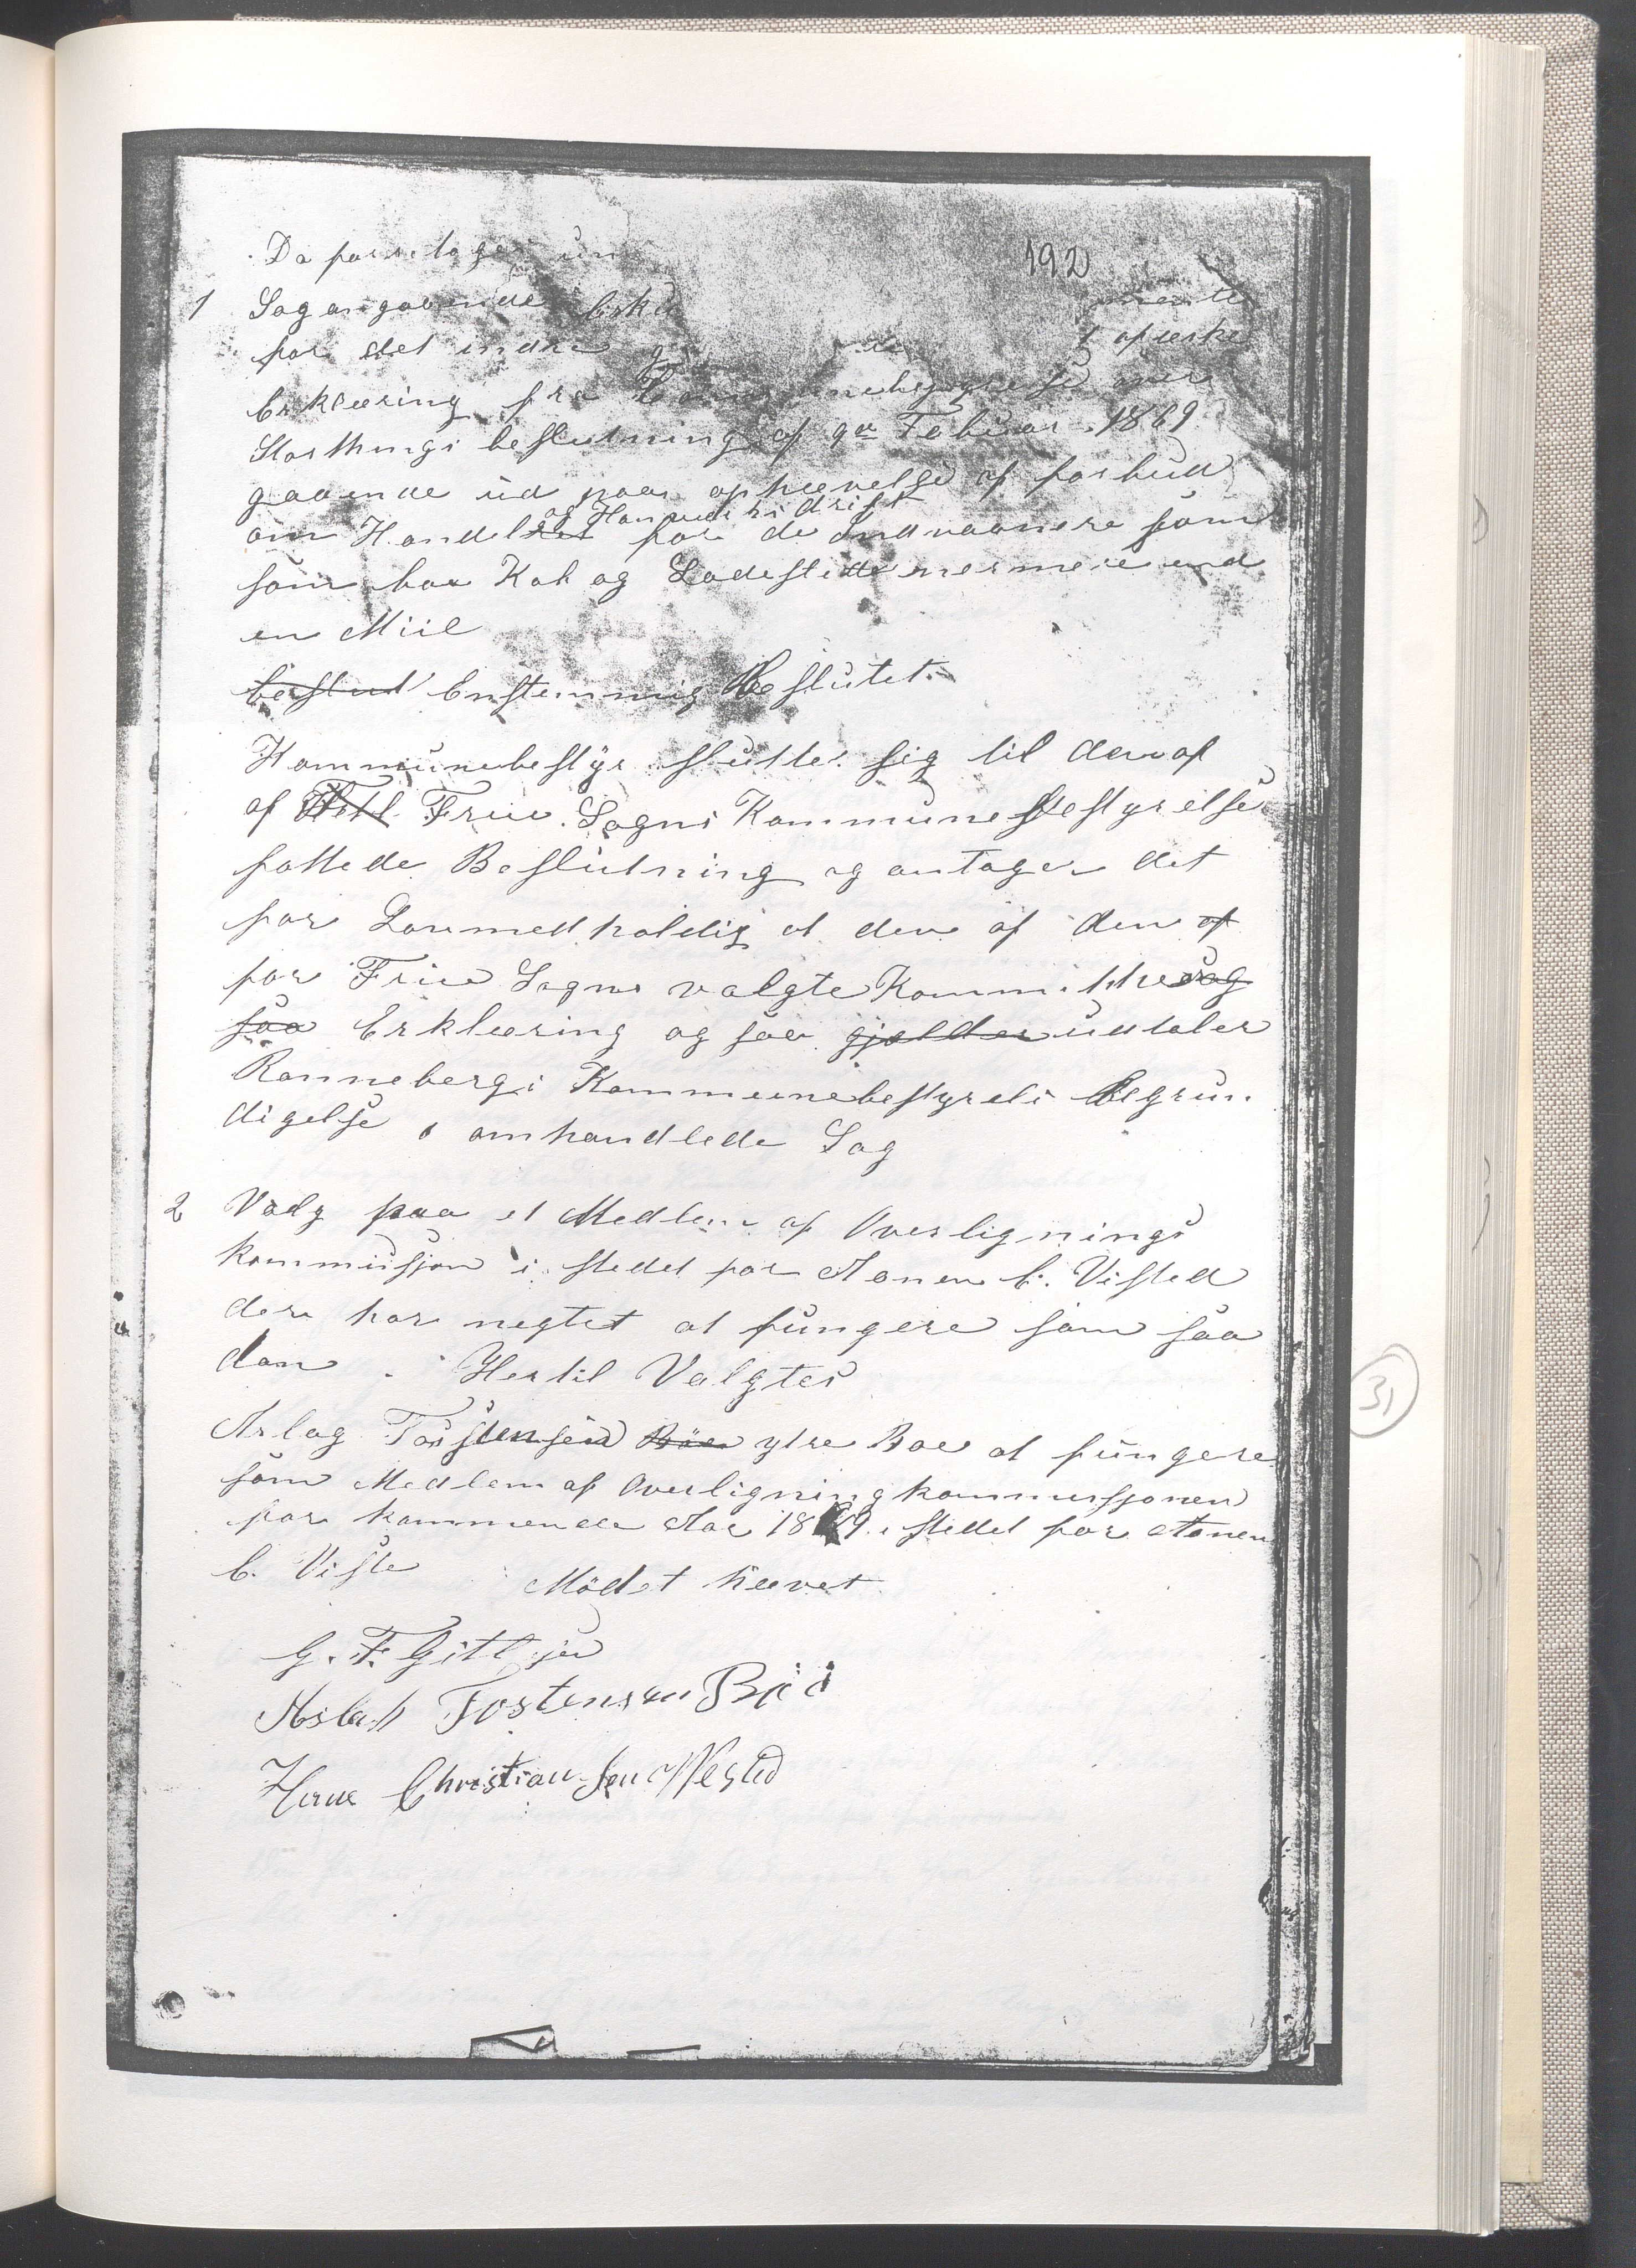 192
Da
1 Sag angaaende
for det indre
Erklæring fra Kommunebestyrelse over
Storthings beslutning af 9de Febuar 1869
gaaende ud paa ophævelse af forbud
og Haandværksdrift
om Handel for de Indvaanere som
som boe Kob og Ladestæder nermere end
en Miil
beslut Enstemmig Beslutet
Kommunebestyr slutter sig til den af
af Frue Sogns Kommunebestyrelse
fattede Beslutning og antager det
for Lovmedholdig at den af den af
for Frue Sogns valgte Kommitte og
saa Erklæring og saa gjelder udtaler
Rannebergs Kommunebestyrels Begrun
digelse i omhandlede Sag
2 Valg paa et Medlem af Overlignings
kommisjon i stedet for Aanen C. Visted
der har negtet at fungere som saa
dan . Hertil Valgtes
Aslag Tostensen Böe ytre Boe at fungere
som Medlem af Overligningkommissjonen
for kommende Aar 1869 i stedet for Aanen
C. Viste Mödet hævet
G. F. Gitlesen
Aslak Tostensen Bøe
Hans Christiansen Visted
31